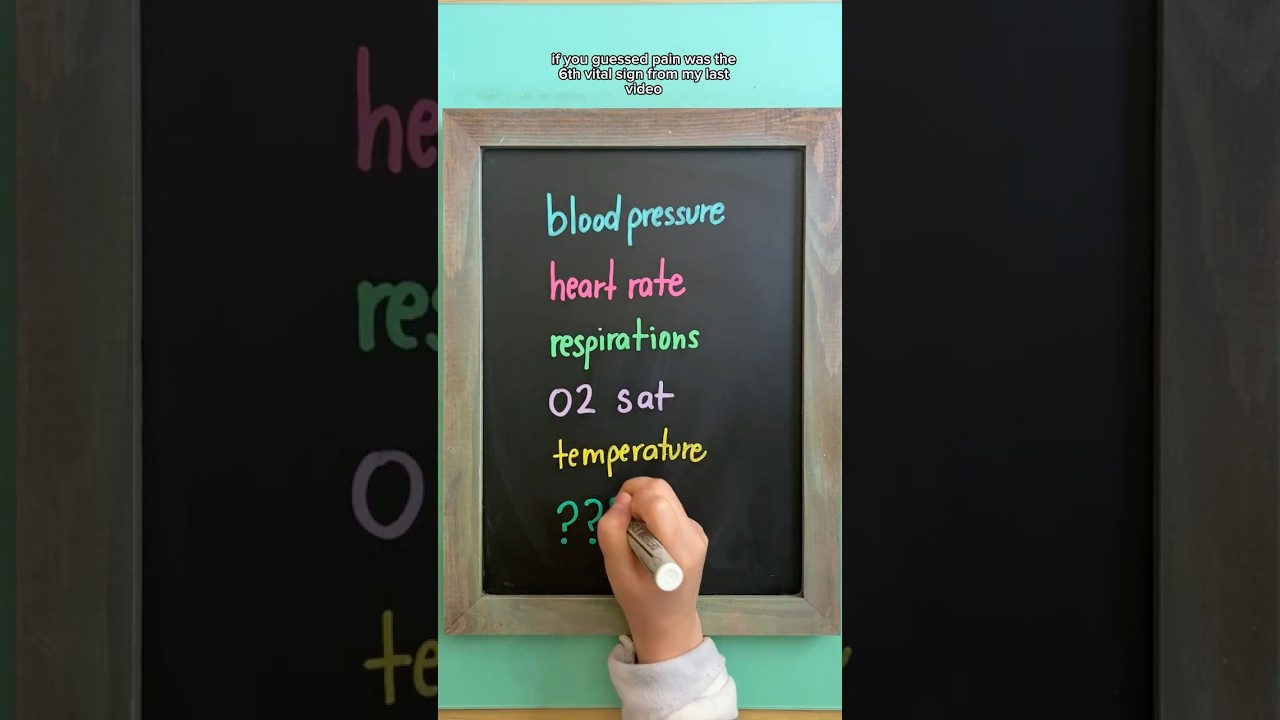 if you guessed pain was the
6th vital sign from my last
video
blood pressure
heart rate
respirations
O2 sat
temperature
??